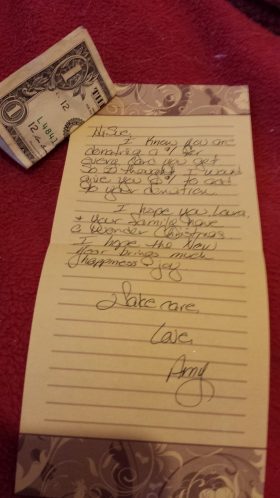 1
L484
12
12
1
Hi Sue,
I know you are
donating a $1 for
every card you get
So I thought I would
give you $1 to add
to your donation.
I hope you, Laura,
+ your family have
a wonder Christmas
I hope the New
Year brings much
happiness + joy.
Take care,
Love,
Amy